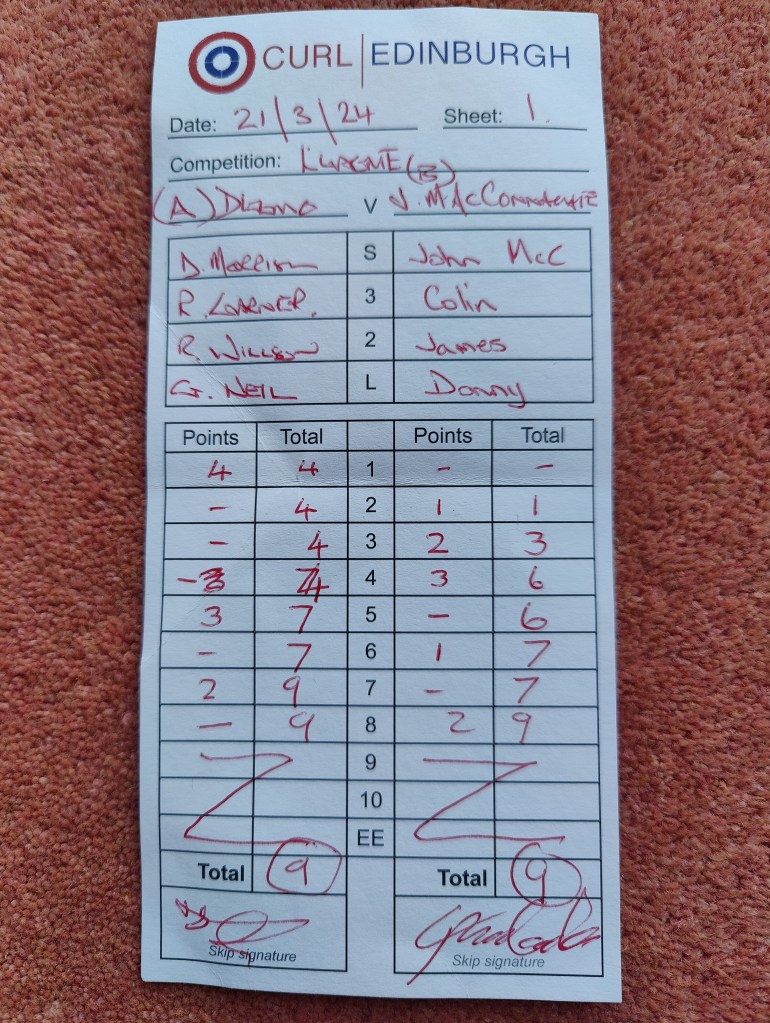 CURL | EDINBURGH
Date: 21/3/24 Sheet: 1.
Competition: (B)
(A) V J. MACCONNACHIE
D. Morrison S John McC
R. 3 Colin
R. WILLSON 2 James
G. NEIL L Donny
Points Total Points Total
4 4 1 - -
- 4 2 1 1
- 4 3 2 3
- 4 4 3 6
3 7 5 - 6
- 7 6 1 7
2 9 7 - 7
- 9 8 2 9
9
10
EE
Total 9 Total 9
Skip signature Skip signature